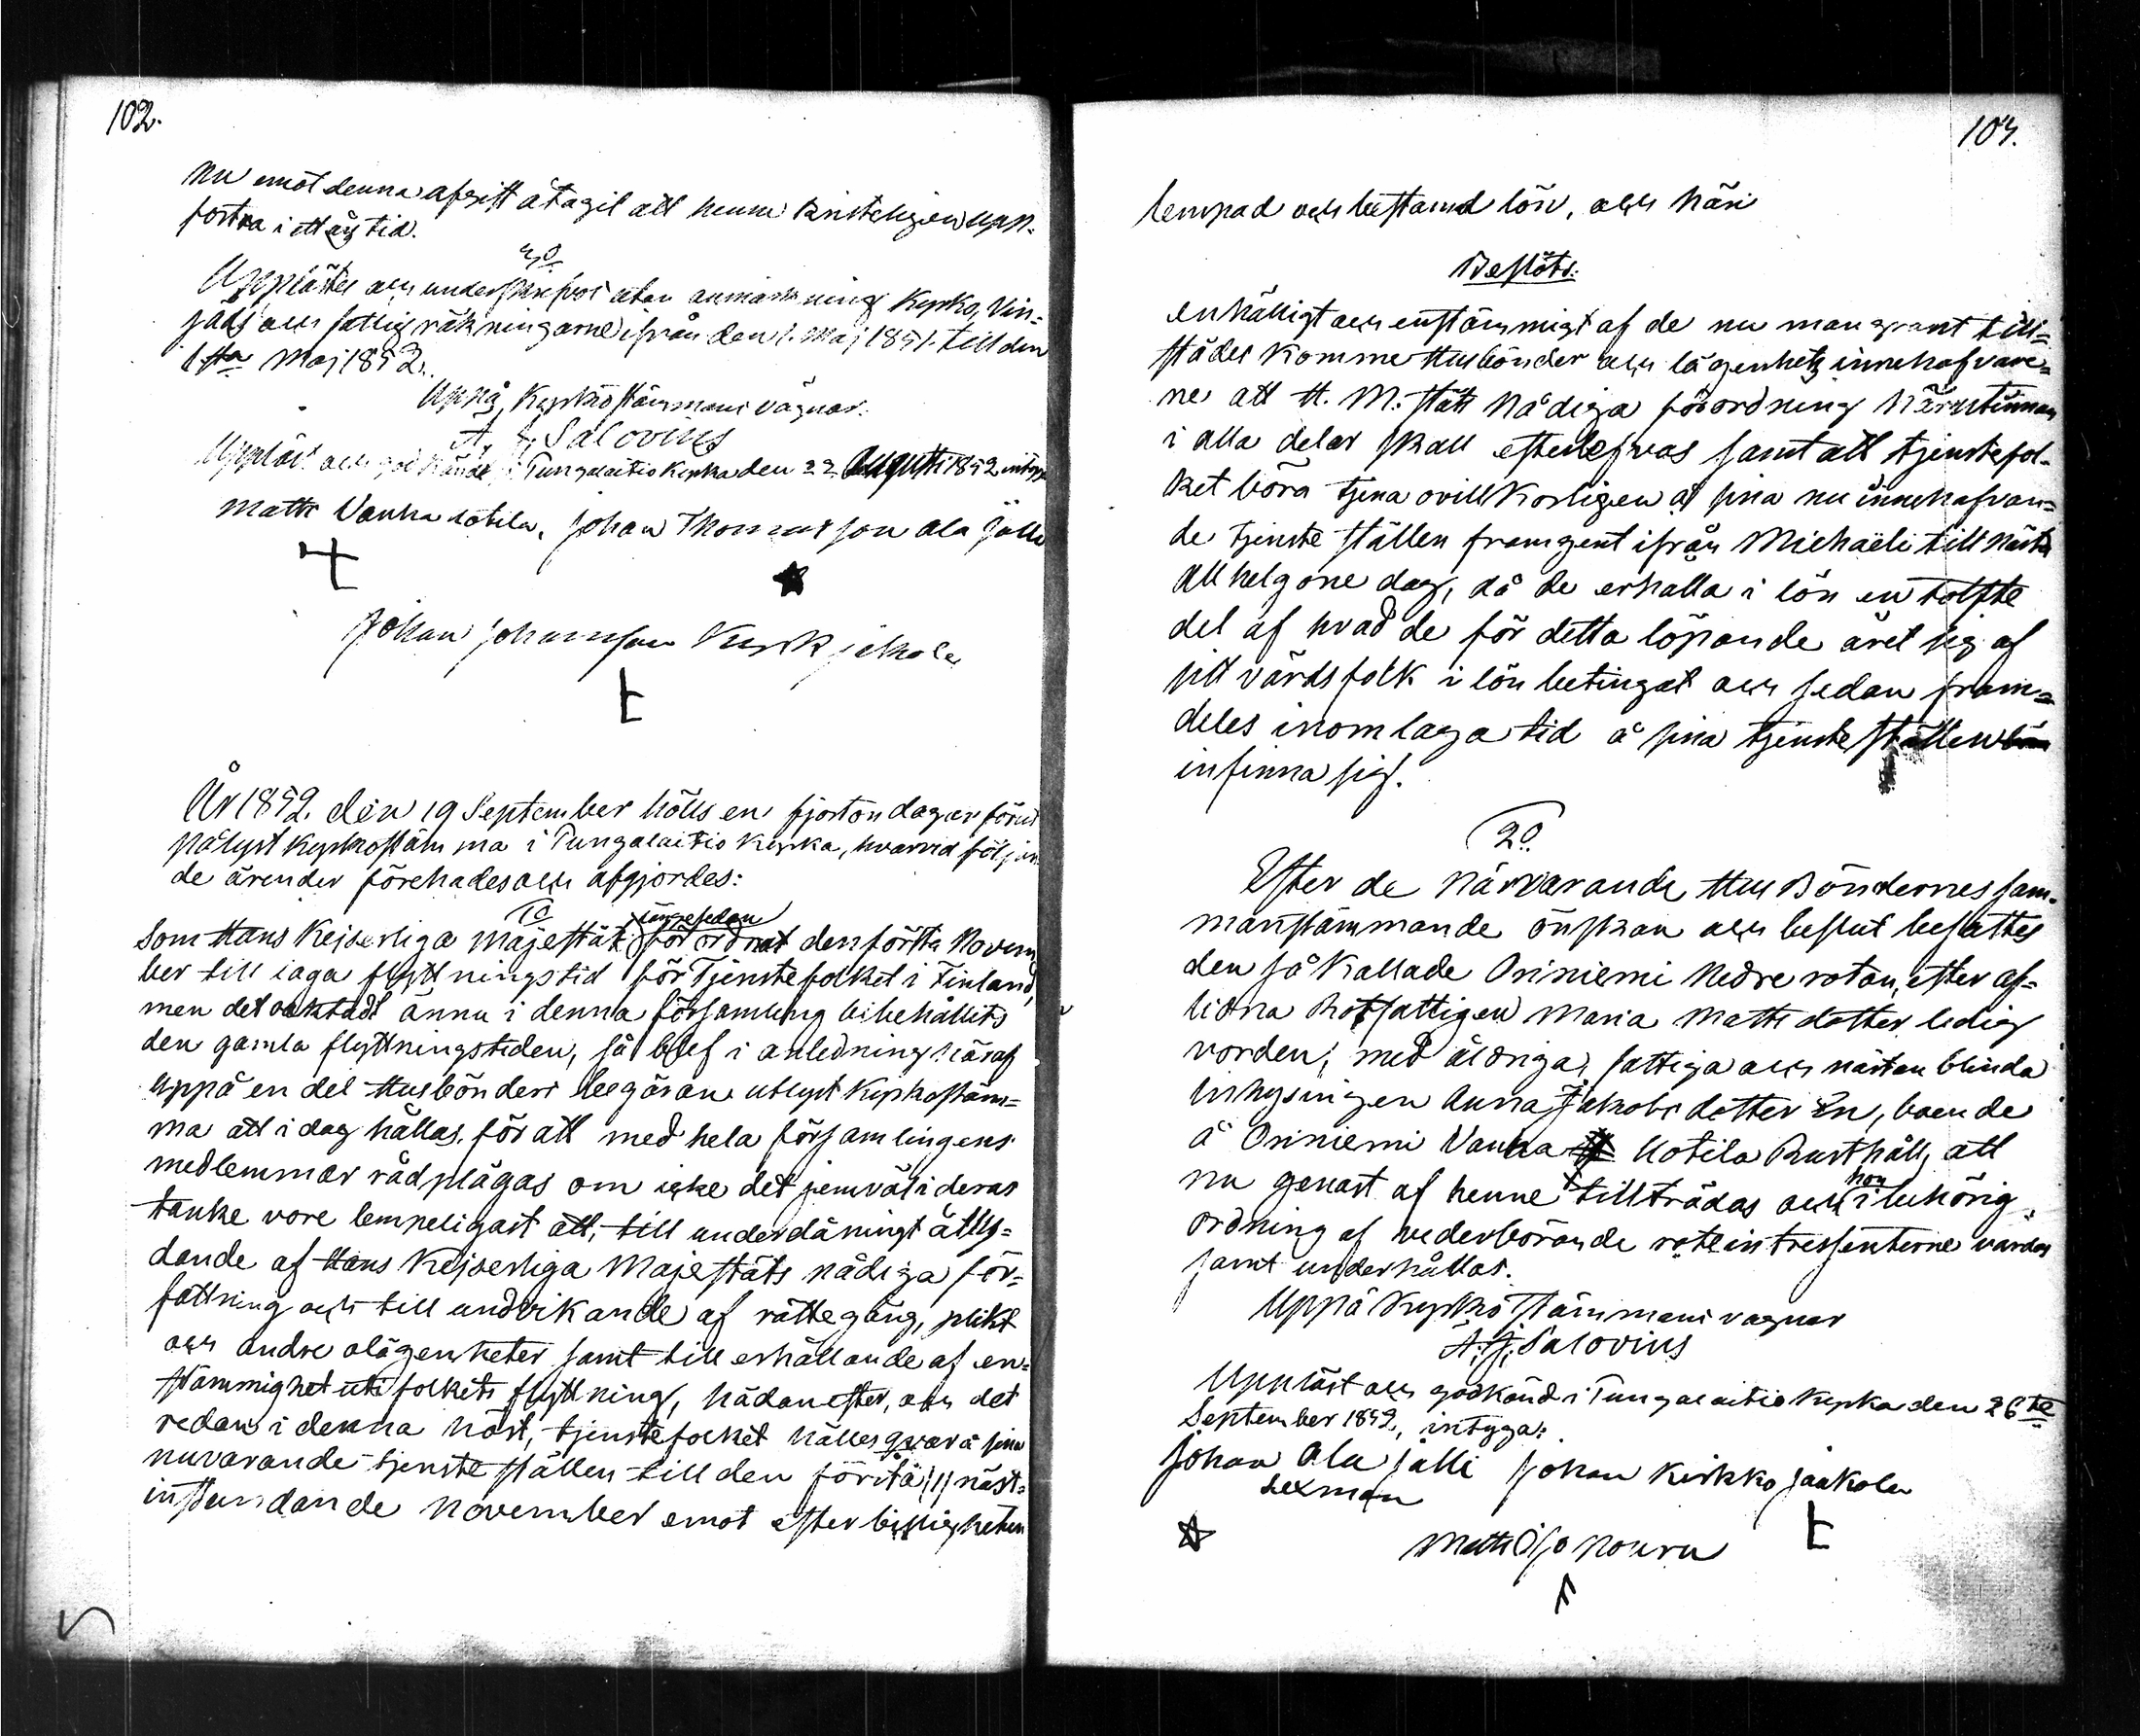 102.
nu emot denna afgift åtagit att henne kristeligen upp-
fostra i ett års tid.
4o
Upplästes och underskrefvos utan anmärkning Kyrko, Vin-
sads och fattig räkningarne ifrån den 1. Maj 1851 till den
1sta Maj 1852.
Uppå Kyrkostämmans vägnar.
A. J. Salovius
Uppläst och godkändt i Pungalaitio kyrka den 22 Augusti 1852 intyga
Matts Vanha Kotila, Johan Thomasson Ala Jälli
Johan Johansson Kirkko jakola
År 1852. den 19 September hölls en fjorton dagar förut
pålyst kyrkostämma i Pungalaitio kyrka, hvarvid följan
de ärender förehades och afgjordes:
1o
Som Hans Kejserliga Majestät längesedan förordnat den första Novem
ber till laga flyttningstid för Tjenstefolket i Finland,
men det oaktadt ännu i denna församling bibehållits
den gamla flyttningstiden, så blef i anledning häraf
uppå en del Husbönders begäran utlyst Kyrkostäm=
ma att i dag hållas, för att med hela församlingens
medlemmar rådplägas om icke det jemväl i deras
tanke vore lempeligast att, till underdånigt åtly=
dande af Hans Kejserliga Majestäts nådiga för=
fattning och till undvikande af rättegång, plikt
och andre olägenheter samt till erhållande af en=
stämmighet uti folkets flyttning, hädanefter, och det
redan i denna höst, tjenstefolket hålles qvar å sina
nuvarande tjenste ställen till den första (1) näst=
instundande November emot efter billigheten
103.
lempad och bestämd lön, och häri
Beslöts:
enhälligt och enstämmigt af de nu mangrant till=
städes komme Husbönder och lägenhets innehafvare=
ne att H. M:stäts Nådiga förordning härutinnan
i alla delar skall efterlefvas samt att tjenstefol-
ket böra tjena ovillkorligen å sina nu innehafvan=
de tjenste ställen framgent ifrån Michaëli till nästa
Allhelgone dag, då de erhålla i lön en tolfte
del af hvad de för detta löpande året sig af
sitt värdsfolk i lön betingat och sedan fram=
deles inom laga tid å sina tjenste ställen
infinna sig.
2o
Efter de närvarande Hus Böndernes sam-
manstämmande önskan och beslut besattes
den så kallade Oriniemi Nedre rotan, efter af=
lidna Rotfattigen Maria Matts dotter ledig
vorden, med åldriga, fattiga och nästan blinda
Inhysingen Anna Jakobs dotter En, boende
å Oriniemi Vanha Kotila Rusthåll, att
nu genast af henne tillträdas och hon i behörig
ordning af vederbörande roteintressenterne vårdas
samt underhållas.
Uppå Kyrko Stämmans vägnar
A. J. Salovius
Uppläst och godkänd i Pungalaitio kyrka den 26te
September 1852, intyga:
Johan Ala jälli Johan Kirkko jaakola
Sexman
Matts Iso Nouru